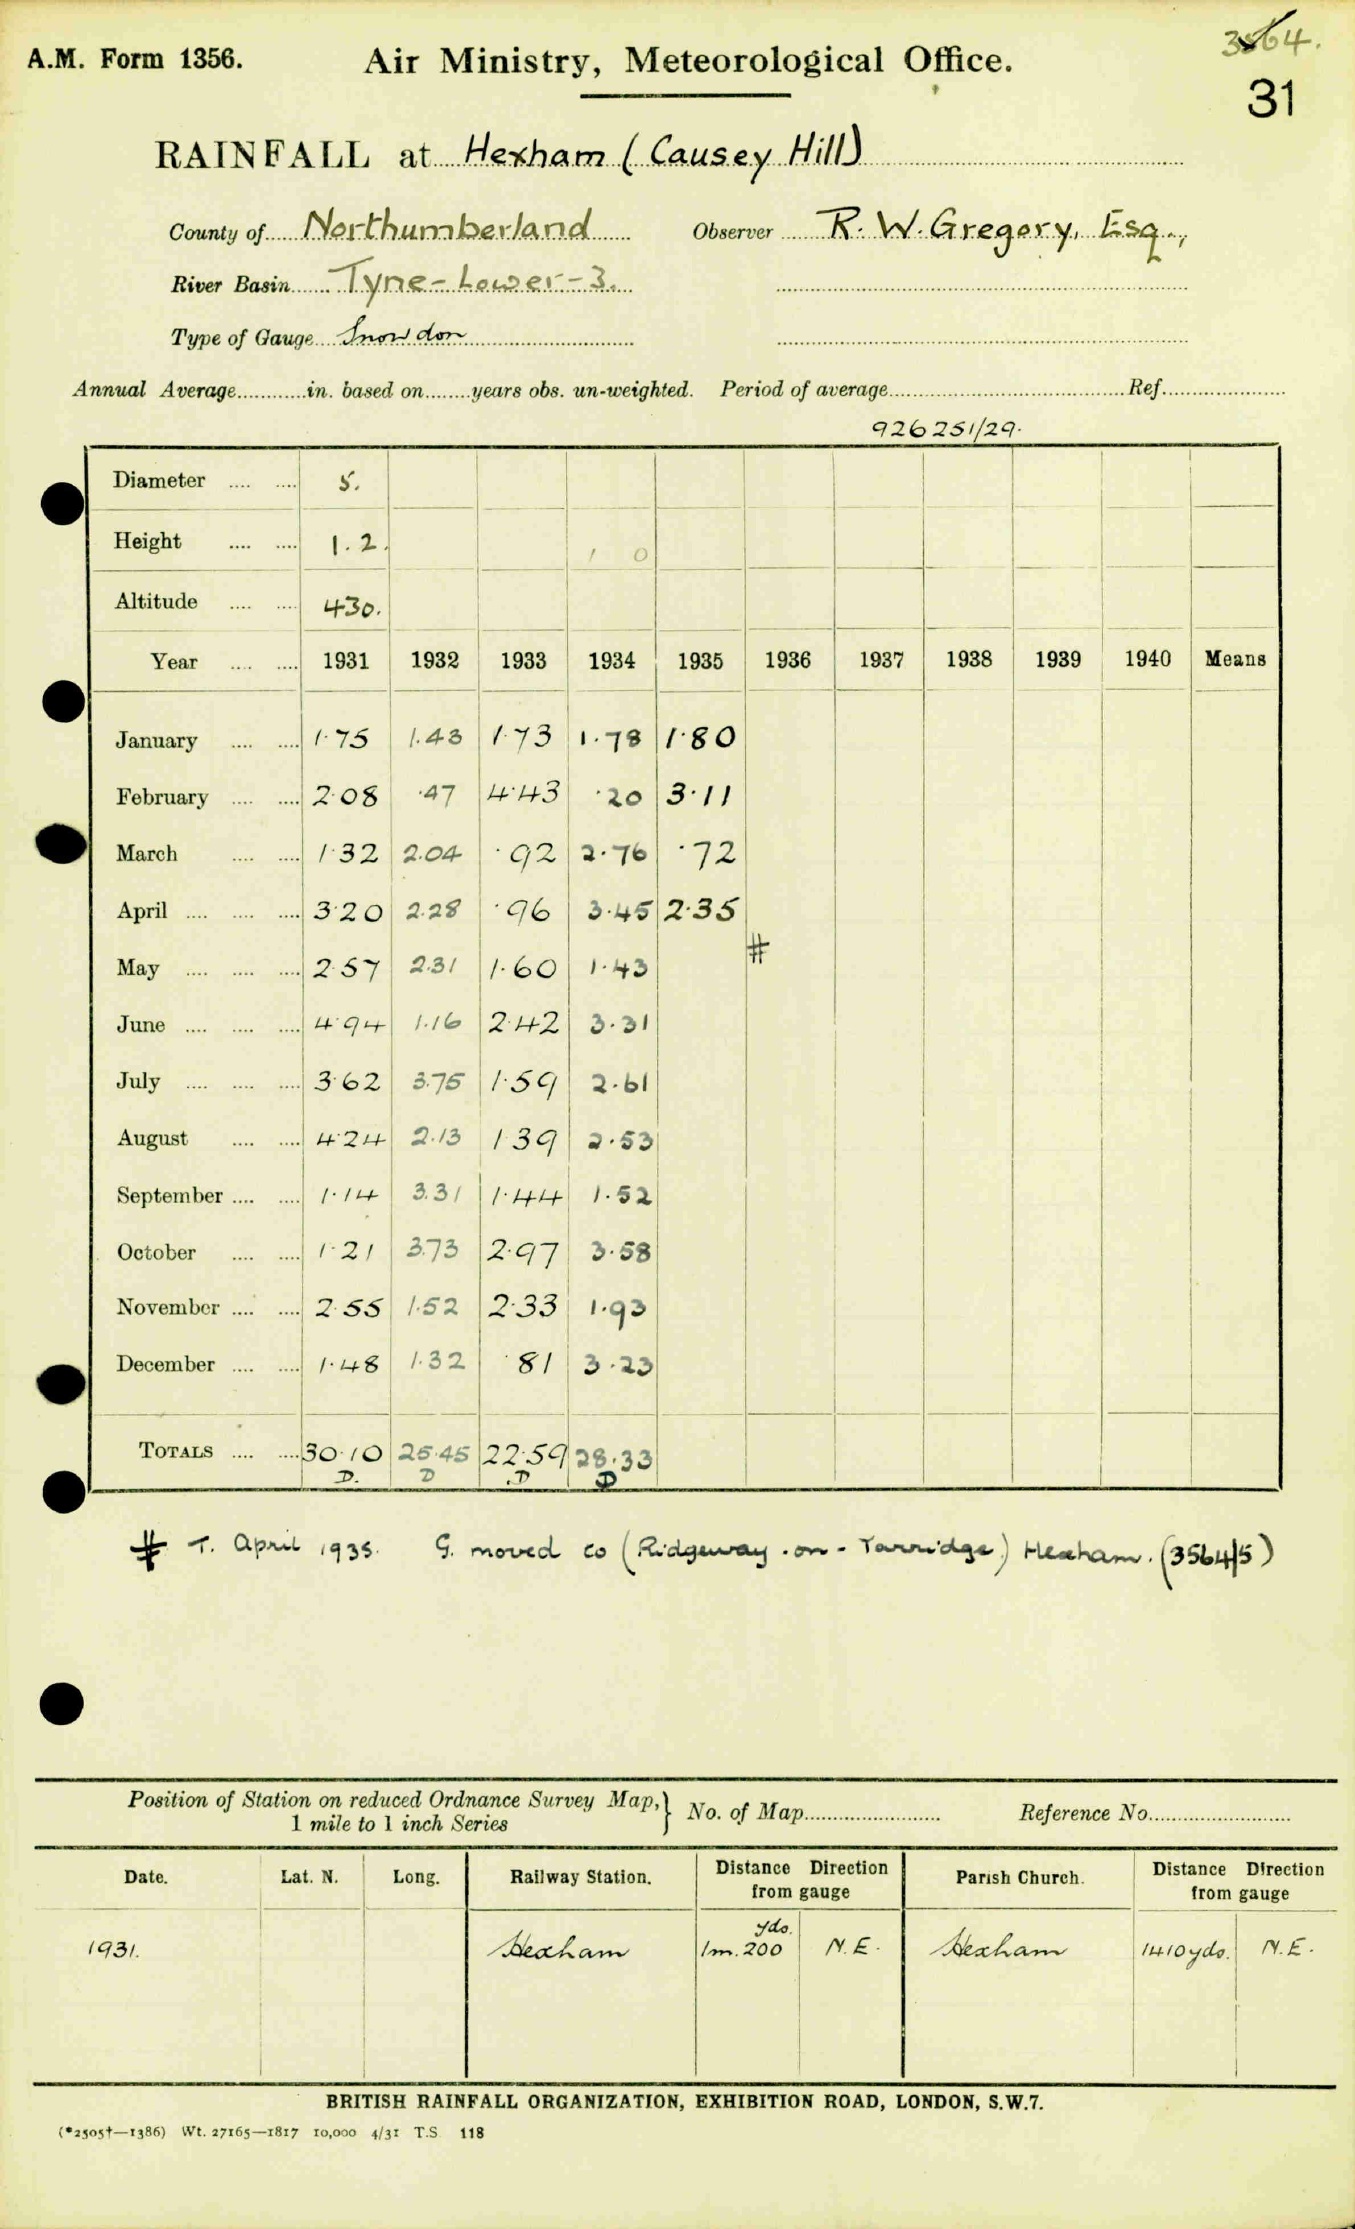 3564.
A.M. Form 1356. Air Ministry, Meteorological Office.
31
RAINFALL at Hexham (Causey Hill)
County of Northumberland Observer R. W. Gregory, Esq.,
River Basin Tyne-Lower-3.
Type of Gauge Snowdon
Annual Average............in. based on........years obs. un-weighted. Period of average.................... Ref....................
926251/29.
Diameter .... .... 5.
Height .... .... 1.2. 1 0
Altitude .... .... 430.
Year .... .... 1931 1932 1933 1934 1935 1936 1937 1938 1939 1940 Means
January .... .... 1.75 1.43 1.73 1.78 1.80
February .... .... 2.08 .47 4.43 .20 3.11
March .... .... 1.32 2.04 .92 2.76 .72
April .... .... .... 3.20 2.28 .96 3.45 2.35
May .... .... .... 2.57 2.31 1.60 1.43 #
June .... .... .... 4.94 1.16 2.42 3.31
July .... .... .... 3.62 3.75 1.59 2.61
August .... .... 4.24 2.13 1 39 2.53
September .... .... 1.14 3.31 1.44 1.52
October .... .... 1.21 3.73 2.97 3.58
November .... .... 2.55 1.52 2.33 1.93
December .... .... 1.48 1.32 .81 3.23
TOTALS .... .... 30.10 25.45 22.59 28.33
D. D .D D
# T. April 1935. G. moved to (Ridgeway-on-Tarridge) Hexham. (3564/5)
Position of Station on reduced Ordnance Survey Map,} No. of Map........................ Reference No.........................
1 mile to 1 inch Series
Date. Lat. N. Long. Railway Station. Distance Direction from gauge Parish Church. Distance Direction from gauge
1931. Hexham 1m. 200 yds. N.E. Hexham 1410 yds. N.E.
BRITISH RAINFALL ORGANIZATION, EXHIBITION ROAD, LONDON, S.W.7.
(*2505†—1386) Wt. 27165—1817 10,000 4/31 T.S. 118